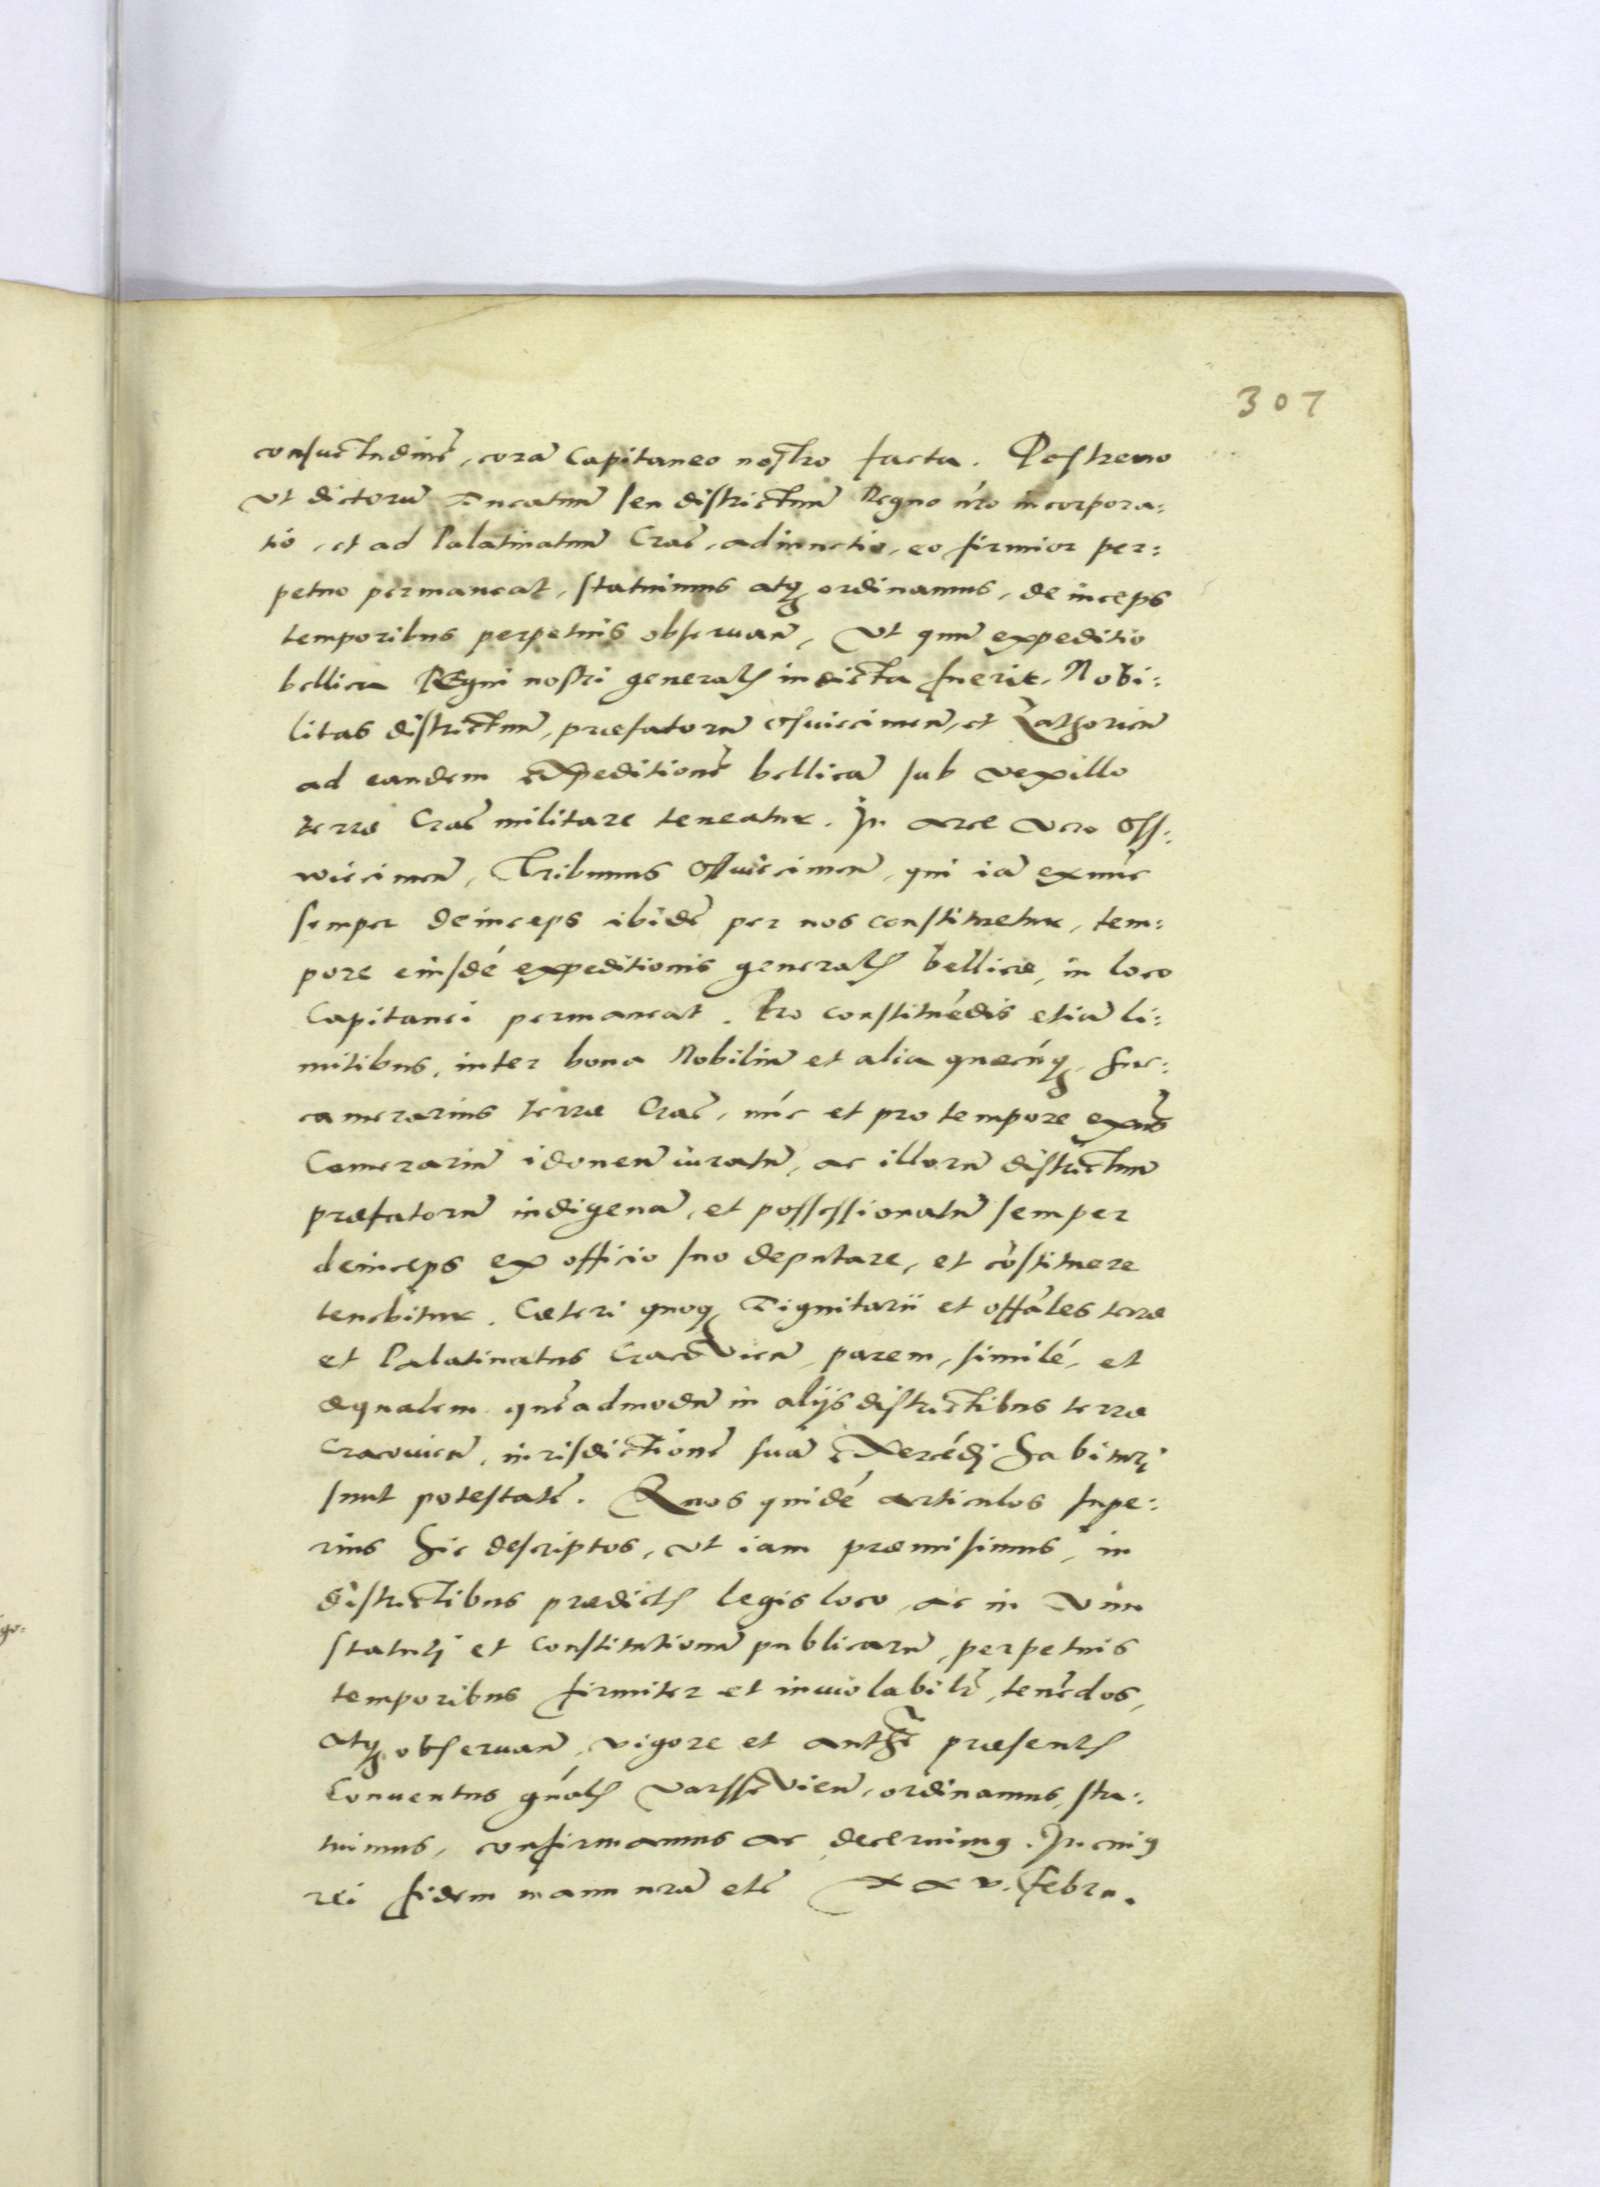 307
consuetudinē, corā Capitaneo nostro facta. Postremo
vt dictorū Ducatuū seu districtuū Regno nr̄o incorpora:
tio, et ad Palatinatum Crac̄, adiunctio, eo firmior per:
petuo permaneat, statuimus atq₃ ordinamus, deinceps
temporibus perpetuis obseruan̄, Vt quū expeditio
bellica Regni nostri generalis indicta fuerit, Nobi:
litas districtuū, præfatorū Osuiecimen̄, et Zathorien̄
ad eandem expeditionē bellicā sub vexillo
terræ Crac̄ militare teneatur. In arce vero Oss:
wiecimen̄, Tribunus Osswiecimen̄, qui iā ex nūc
semper deinceps ibidē per nos constituetur, tem:
pore eiusdē expeditionis generalis bellicæ, in loco
Capitanei permaneat. Pro constituēdis etiā li:
mitibus, inter bona Nobiliū et alia quæcūq₃, Suc:
camerarius terræ Crac̄, nūc et pro tempore exn̄s
Camerariū idoneū iuratū, ac illorū districtuū
præfatorū indigenā, et possessionatū semper
deinceps ex officio suo deputare, et cōstituere
tenebitur. Cæteri quoq₃ Dignitarii et offāles terræ
et Palatinatus Cracovien̄, parem, similē, et
æqualem quēadmodū in alijs districtibus terræ
Cracouien̄, iurisdictionē suā exercēdi habituri
sunt potestatē. Quos quidē articulos supe:
rius hic descriptos, vt iam præmisimus, in
districtibus prædictis legis loco, ac in vim
statuti et Constitutionū publicarū, perpetuis
temporibus firmiter et inuiolabilr̄, tenēdos,
atq₃ obseruan̄, vigore et authē præsentis
Conuentus gn̄alis Varssevien̄, ordinamus, sta:
tuimus, confirmamus ac decernimus. In cuius
rei fidem manu nrā etc̄ XXV. Febru.